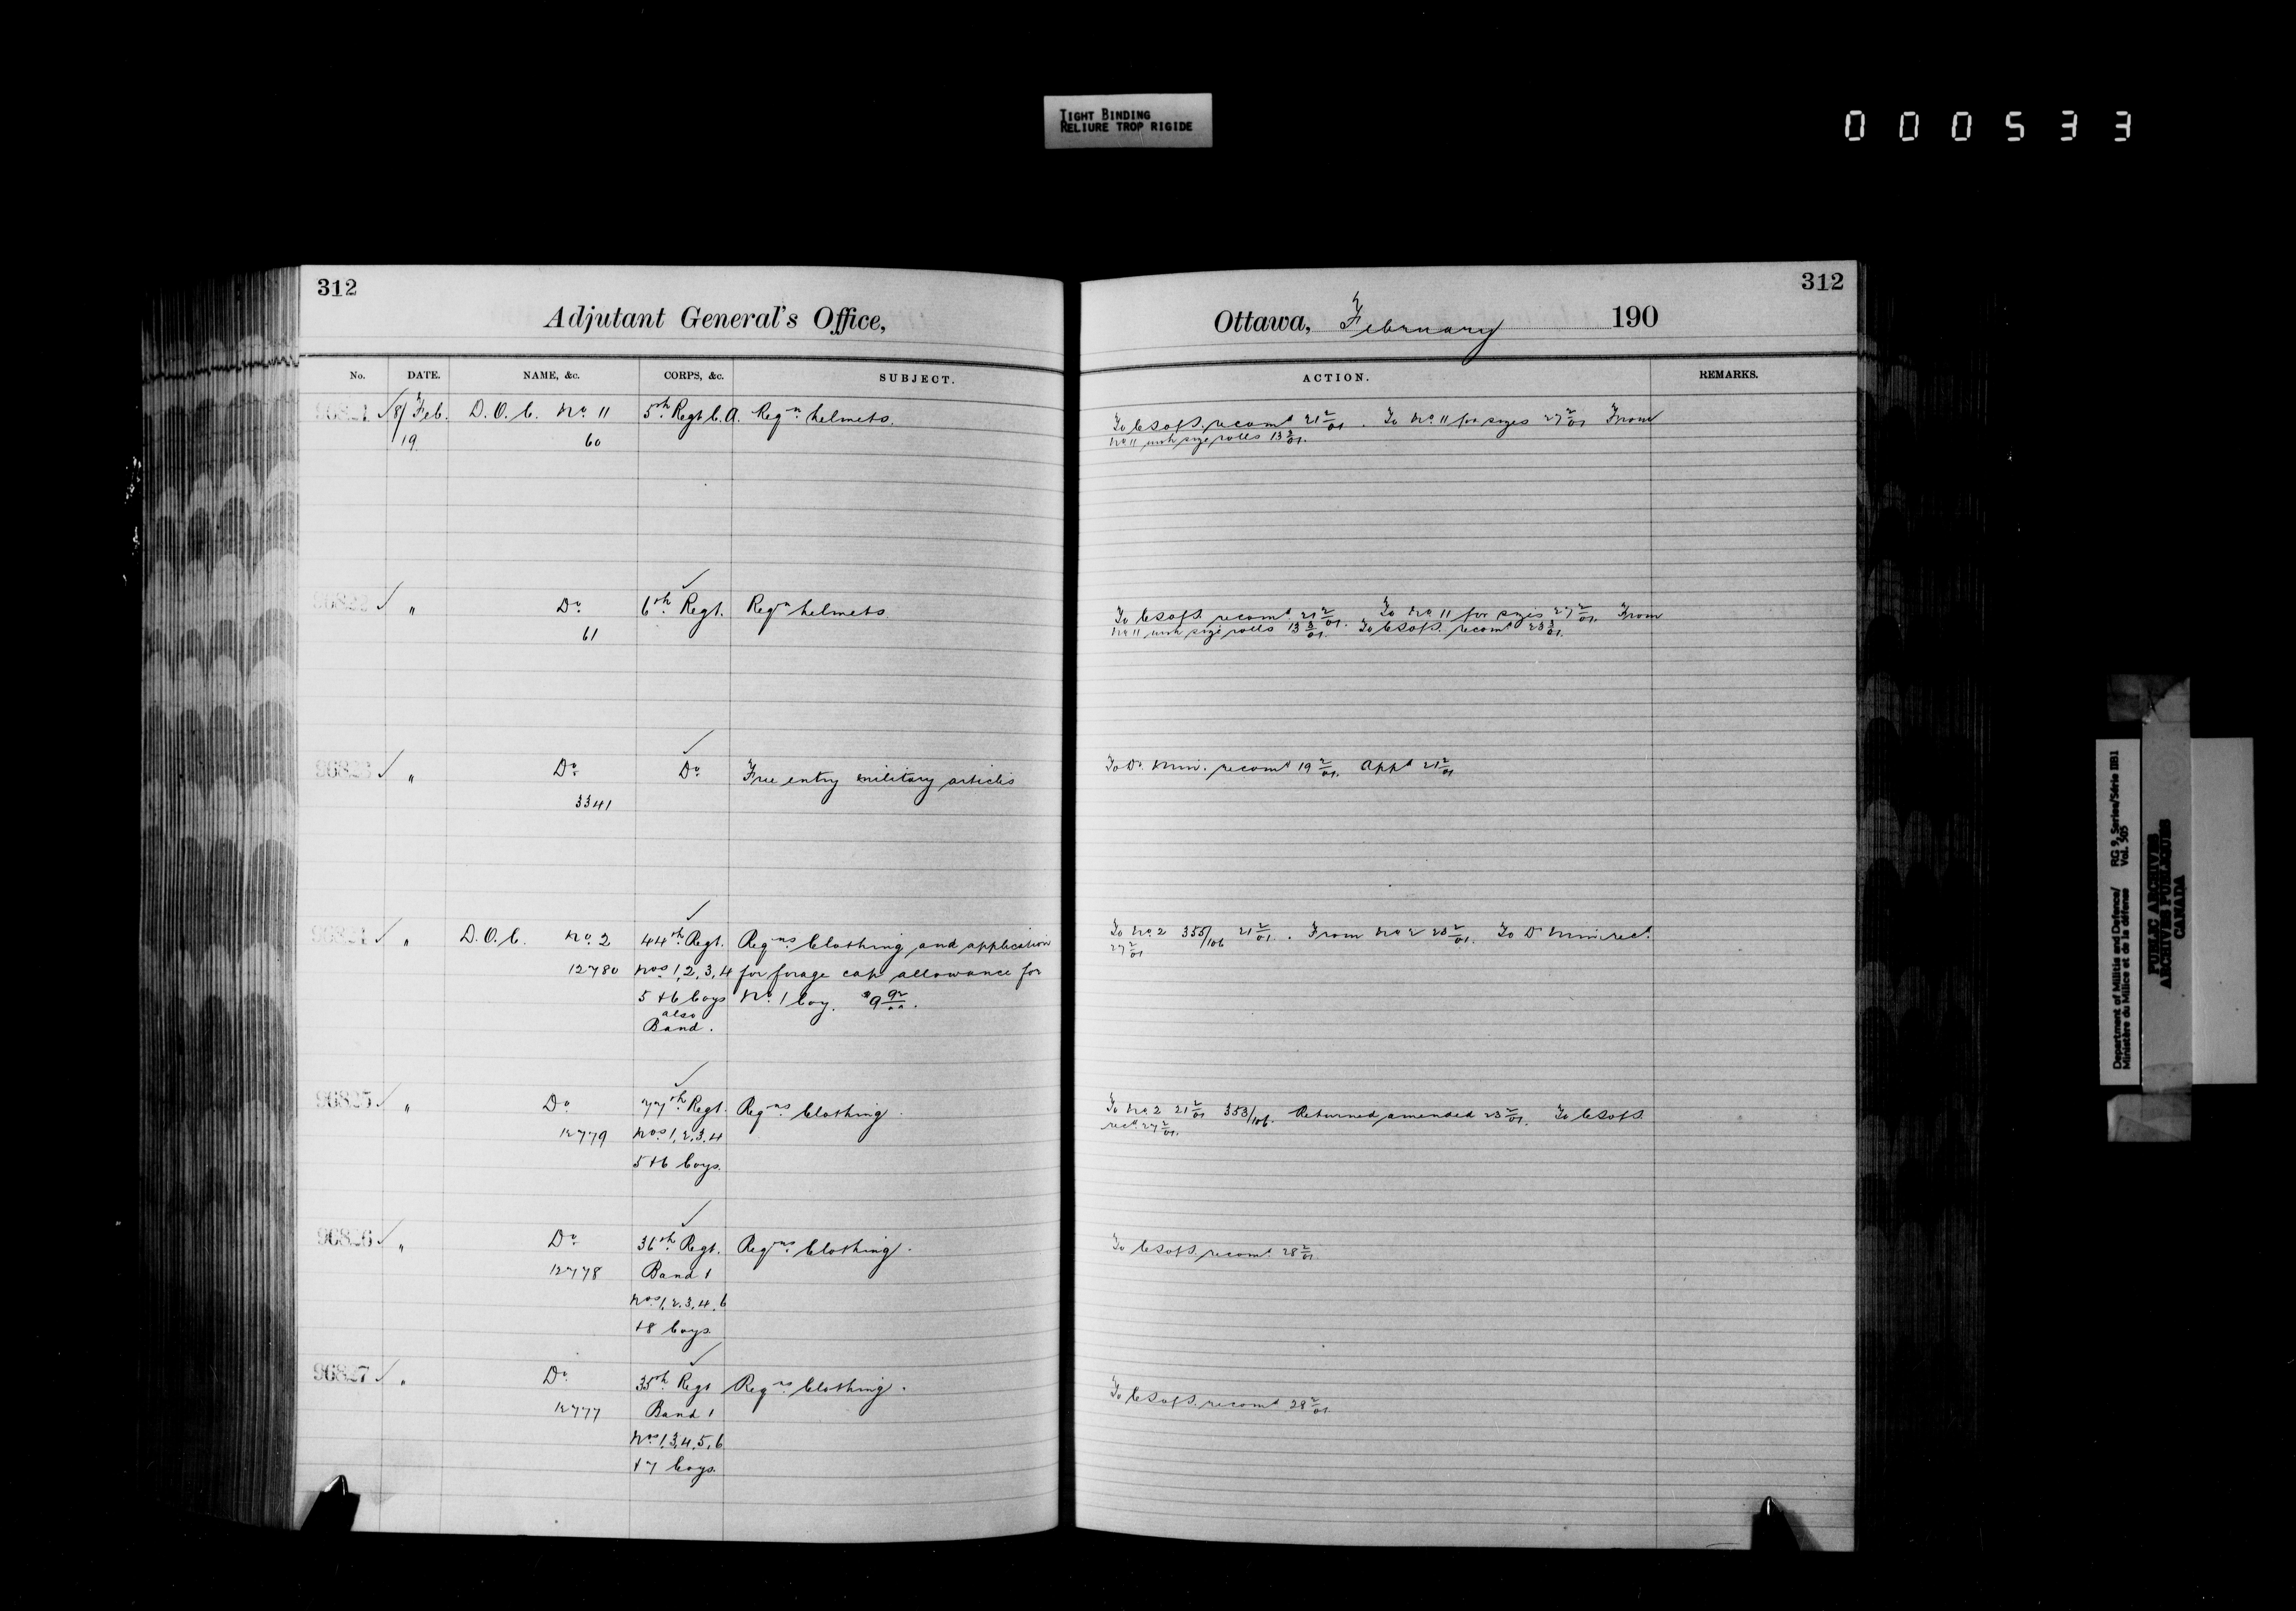 TIGHT BINDING
RELIURE TROP RIGIDE
000533
312
Adjutant General's Office,
No. DATE. NAME, &c. CORPS, &c. SUBJECT.
96821 ✓ 8/19 Feb. D.O.C. No. 11 5th Regt C.A. Reqn. helmets.
60
" Do. 6th Regt. Reqn helmets.
61
96823 ✓ " Do. Do. Free entry military articles
3341
✓ " D.O.C. No. 2 44th Regt. Reqns. Clothing and application
12780 Nos 1, 2, 3, 4 for forage cap allowance for
5 + 6 Coys No. 1 Coy. $9 92/00.
also
Band.
96825 ✓ " Do. 77th Regt. Reqns Clothing.
12779 Nos 1, 2, 3, 4
5 + 6 Coys.
96826 ✓ " Do. 36th Regt. Reqns. Clothing.
12778 Band 1
Nos 1, 2, 3, 4, 6
+ 8 Coys.
96827 ✓ " Do. 35th Regt Reqns. Clothing.
12777 Band 1
Nos 1, 3, 4, 5, 6
+ 7 Coys.
312
Ottawa, February 190
ACTION. REMARKS.
To C.S. of S. recomd 21 2/01. To No. 11 for sizes 27 2/01 From
No. 11 with size rolls 13 3/01.
To C.S. of S. recomd. 21 2/01. To No. 11 for sizes 27 2/01. From
No. 11 with size rolls 13 3/01. To C.S. of S. recomd 23 3/01.
To D. Min. recomd 19 2/01. Appd 21 2/01
To No. 2 355/106 21 2/01. From No 2 23 2/01. To D Min recd.
27 2/01
To No. 2 21 2/01 353/106. Returned amended 23 2/01. To C.S. of S.
recd. 27 2/01.
To C.S. of S. recomd. 28 2/01
To C.S. of S. recomd 28 2/01
Department of Militia and Defence/ RG 9, Series/Série IIB1
Ministère du Milice et de la défense Vol. 505
PUBLIC ARCHIVES
ARCHIVES PUBLIQUES
CANADA